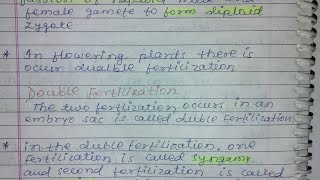 fussion of haploid male and
female gamete to form diploid
zygote
* In flowering plants there is
occur dualble fertilization
Double Fertilization
The two fertlization occurs in an
embryo sac is called duble Fertilization
* in the duble fertilication. one
fertilization is called Syngamy
and second fertilization is called